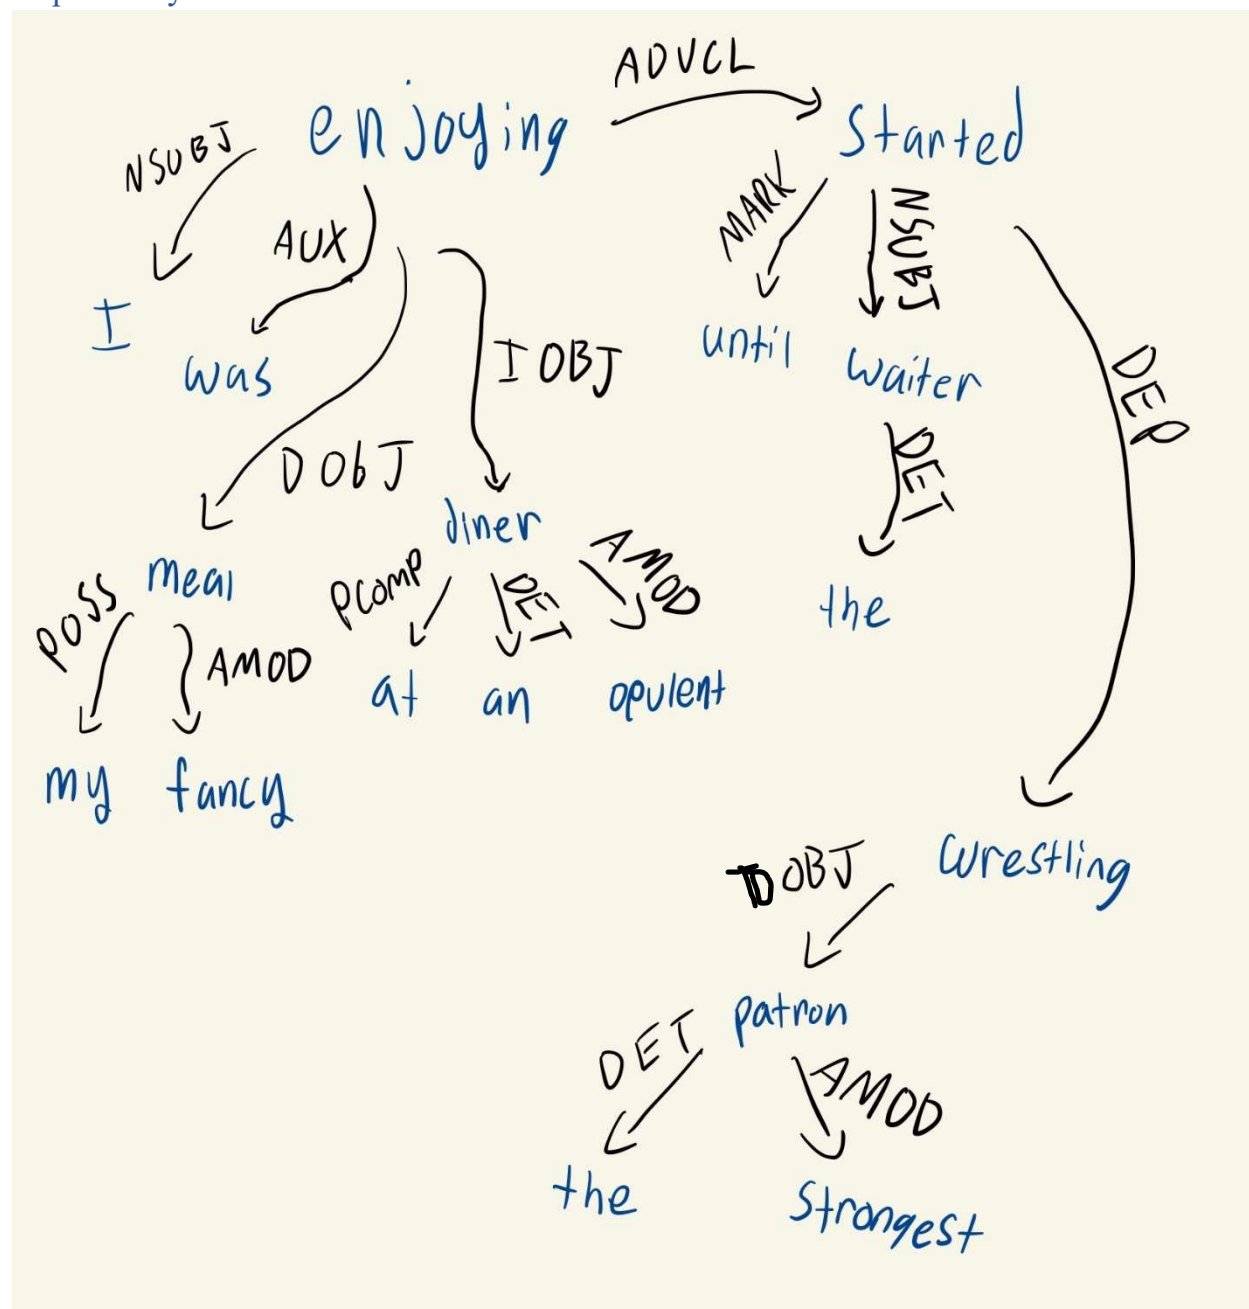 ADVCL
enjoying
Started
NSUBJ
AUX
MARK
NSUBJ
I
was
IOBJ
until
waiter
DEP
DObJ
diner
DET
meal
PCOMP
DET
AMOD
the
POSS
AMOD
at
an
opulent
my
fancy
wrestling
DOBJ
patron
DET
AMOD
the
Strongest